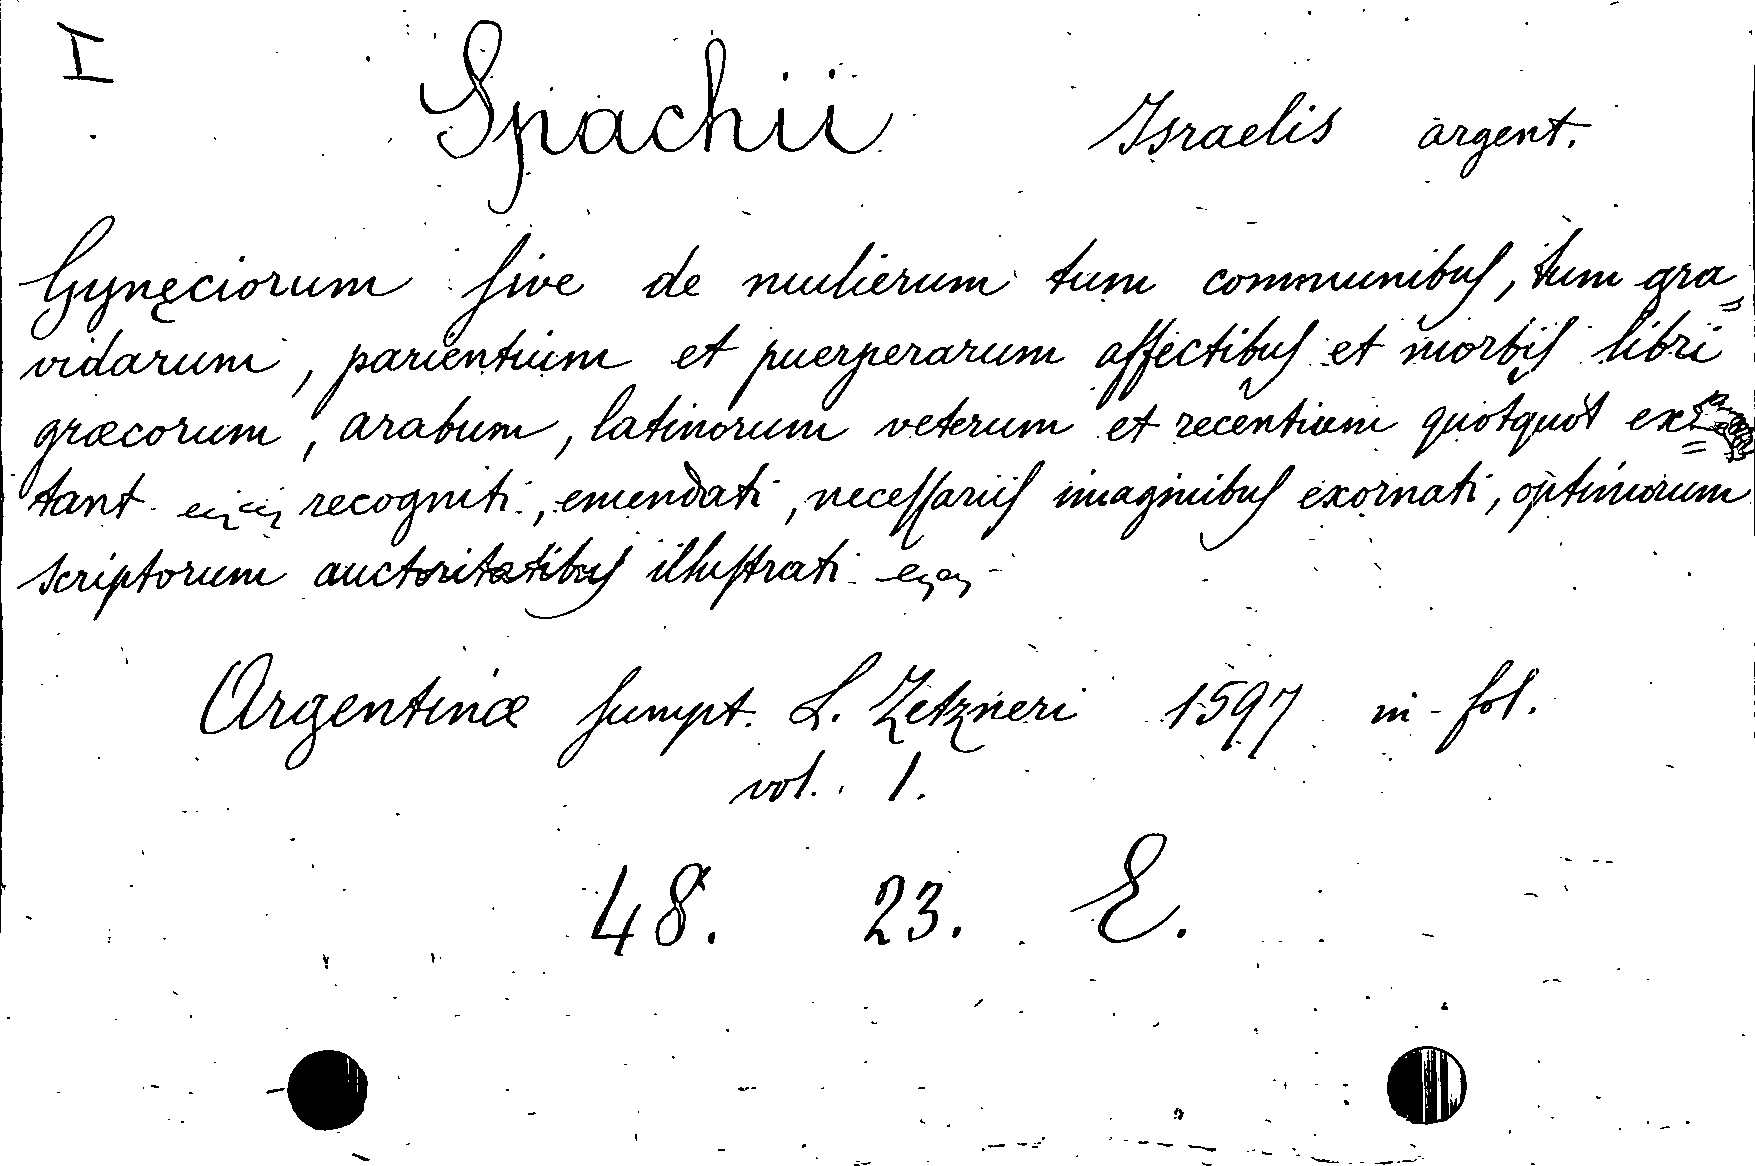 I
Spachii Israelis argent.
Gynęciorum ſive de mulierum tum communibuſ, tum gra„
vidarum, parientium et puerperarum affectibuſ et morbiſ libri
græcorum, arabum, latinorum veterum et recentium quotquot ex=
tant recogniti, emendati, neceſſariiſ imaginibuſ exornati, optimorum
scriptorum auctoritatibuſ illuſtrati
Argentinæ ſumpt. L. Zetzneri 1597 in-fol.
vol. 1.
48. 23. E.